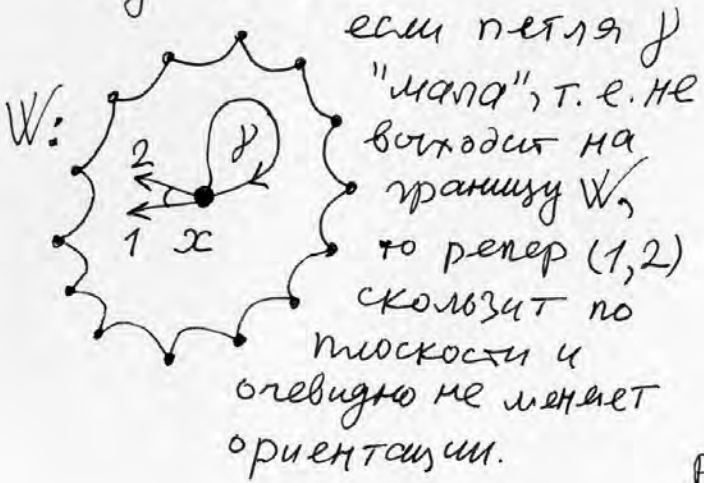 если петля γ
"мала", т.е. не
W:
выходит на
2
γ
границу W,
1 x
то репер (1,2)
скользит по
плоскости и
очевидно не меняет
ориентации.